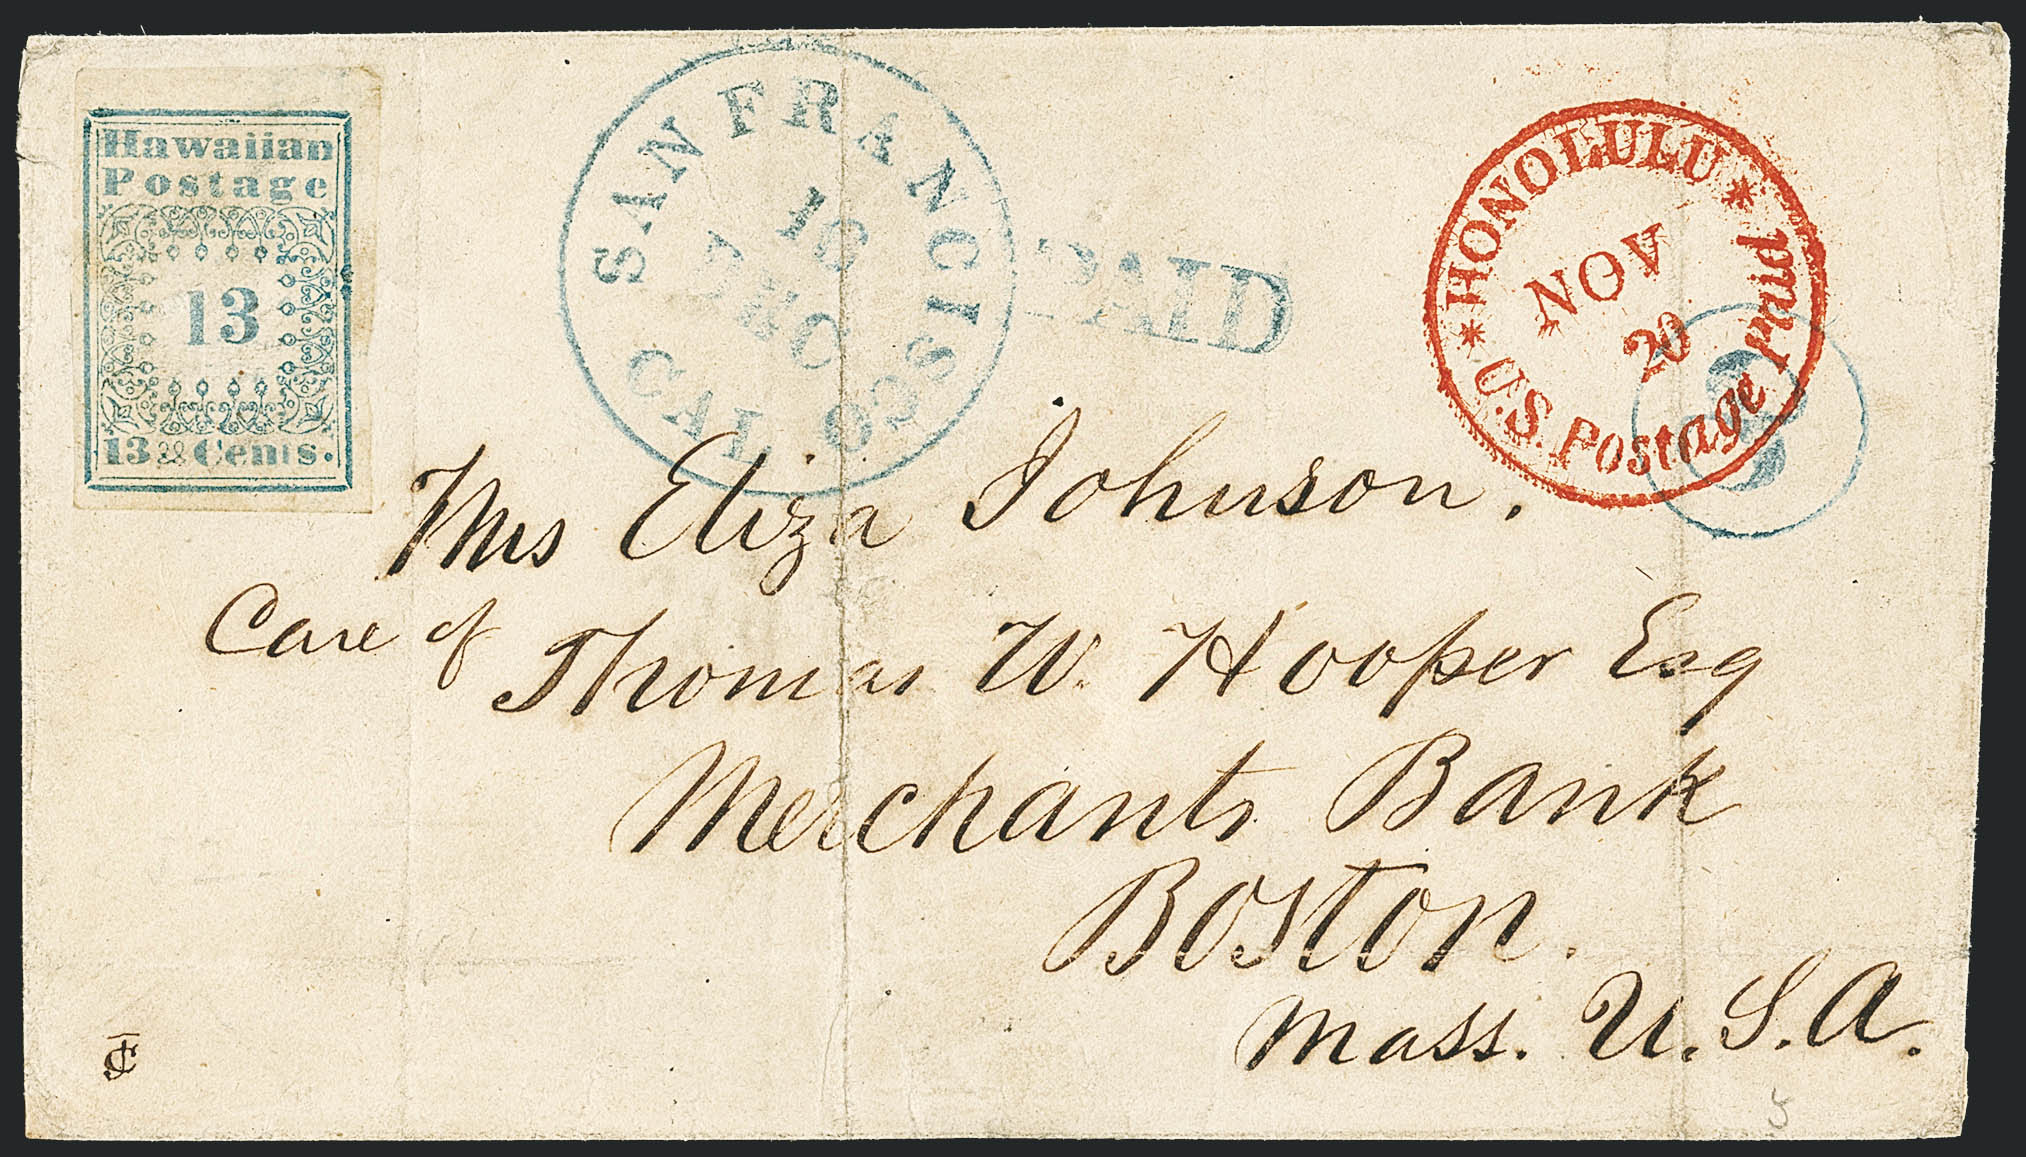 Hawaiian
Postage
13
13 Cents.
SAN FRANCISCO
CAL
16
DEC
PAID
* HONOLULU *
U.S. Postage Paid
NOV
20
8
Mrs Eliza Johnson.
Care of Thomas W. Hooper Esq
Merchants Bank
Boston.
Mass. U.S.A.
5